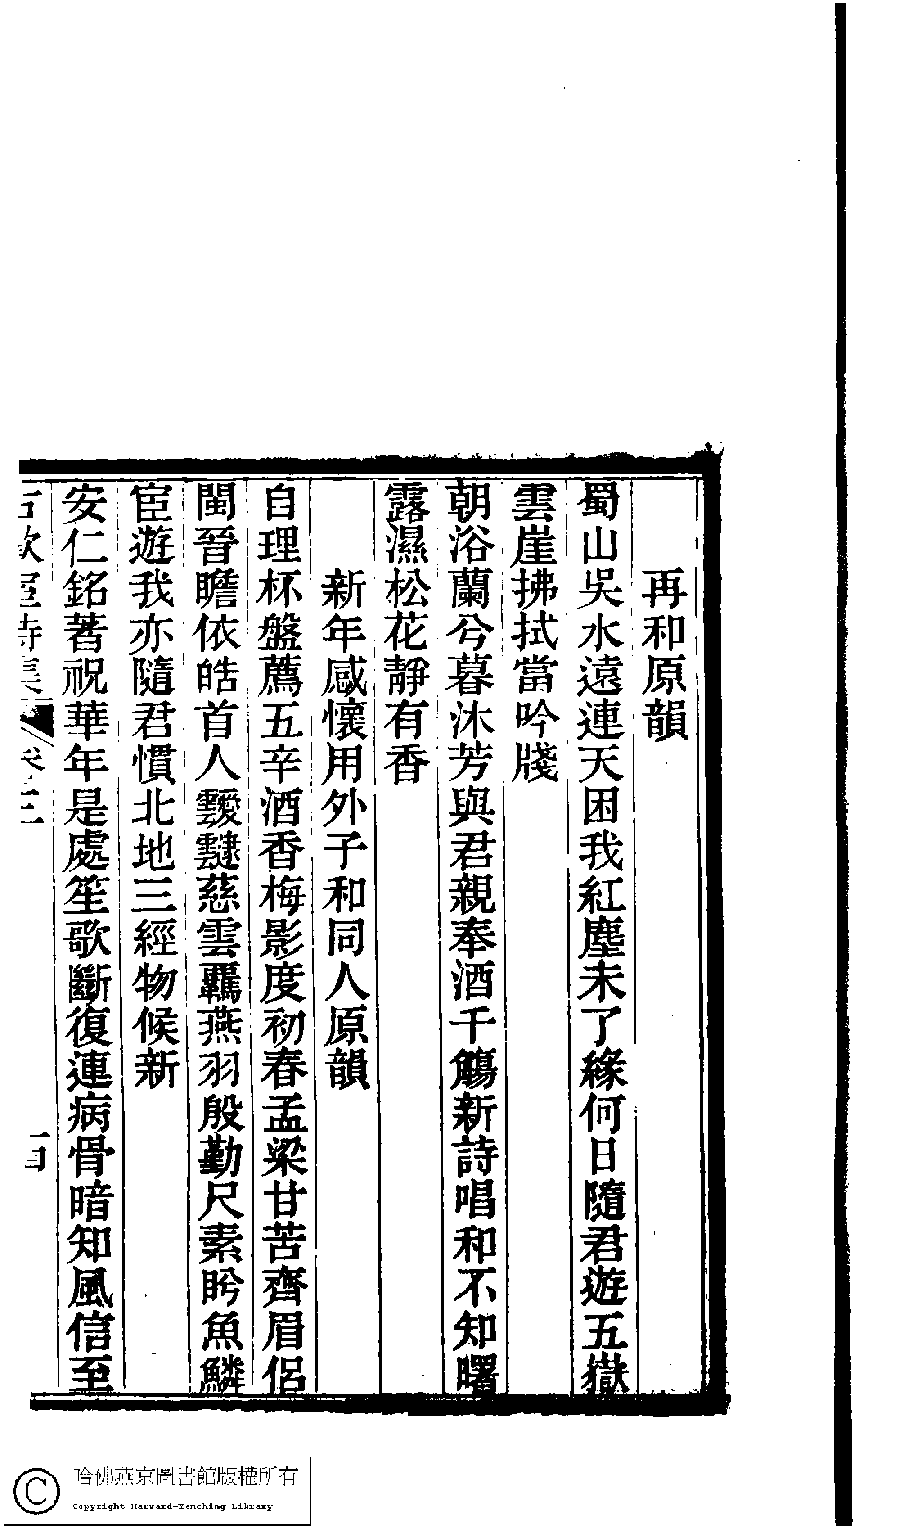 再和原韻
蜀山吳水遠連天困我紅塵未了緣何日隨君遊五嶽
雲崖拂拭當吟牋
朝浴蘭兮暮沐芳與君親奉酒千觴新詩唱和不知曙
露濕松花靜有香
新年感懷用外子和同人原韻
自理杯盤薦五辛酒香梅影度初春孟梁甘苦齊眉侶
閩晉瞻依皓首人靉靆慈雲羈燕羽殷勤尺素盻魚鱗
宦遊我亦隨君慣北地三經物候新
安仁銘著祝華年是處笙歌斷復連病骨暗知風信至
詩集 卷三
哈佛燕京圖書館版權所有
Copyright Harvard-Yenching Library